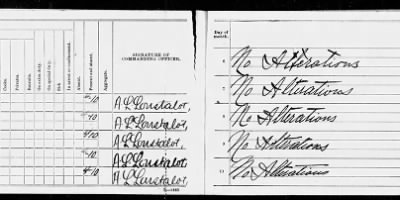 Cooks.
Privates.
Recruits.
On extra duty.
On special duty.
Sick.
In arrest or confinement.
Absent.
Present and absent.
Aggregate.
SIGNATURE OF
COMMANDING OFFICER.
10 A L Lonstalot,
10 A L Lonstalot,
10 A L Lonstalot,
10 A L Lonstalot,
10 A L Lonstalot,
Day of
month.
No Alterations
No Alterations
No Alterations
No Alterations
No Alterations